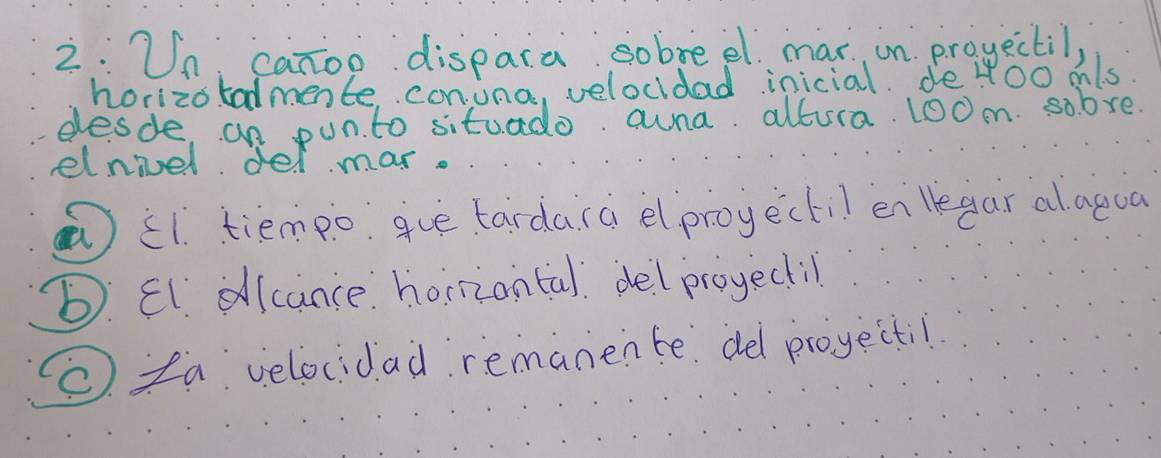 2. Un cañon dispara sobre el mar un proyectil,
horizotalmente, con una, velocidad inicial de 400 m/s
desde un punto situado a una altura 100m sobre
el nivel del mar.
a) El tiempo que tardara el proyectil en llegar al agua
b) El Alcance horizontal del proyectil
c) La velocidad remanente del proyectil.